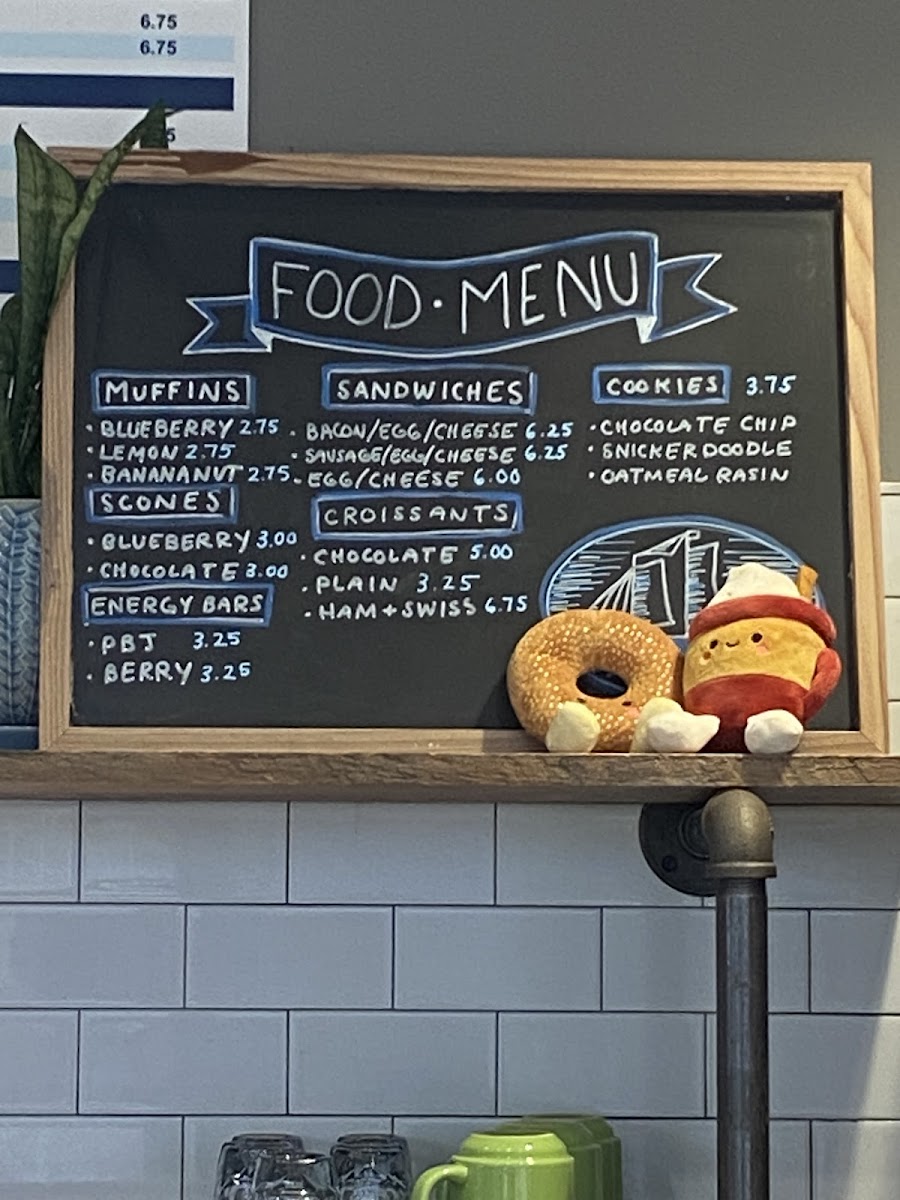 6.75
6.75
5
FOOD · MENU
MUFFINS
· BLUEBERRY 2.75
· LEMON 2.75
· BANANANUT 2.75
SCONES
· BLUEBERRY 3.00
· CHOCOLATE 3.00
ENERGY BARS
· PBJ 3.25
· BERRY 3.25
SANDWICHES
· BACON/EGG/CHEESE 6.25
· SAUSAGE/EGG/CHEESE 6.25
· EGG/CHEESE 6.00
CROISSANTS
· CHOCOLATE 5.00
· PLAIN 3.25
· HAM + SWISS 6.75
COOKIES 3.75
· CHOCOLATE CHIP
· SNICKERDOODLE
· OATMEAL RASIN